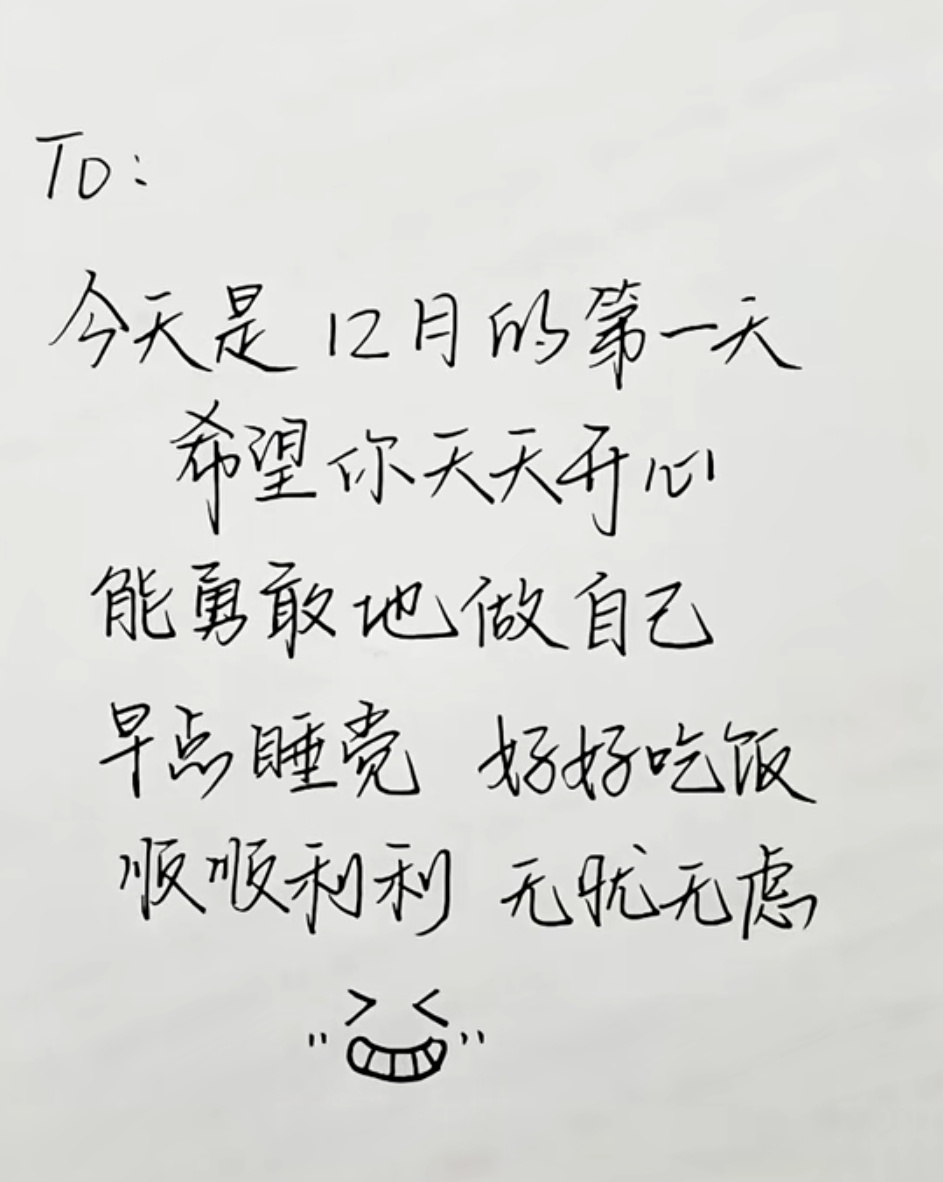 To:
今天是12月的第一天
希望你天天开心
能勇敢地做自己
早点睡觉 好好吃饭
顺顺利利 无忧无虑